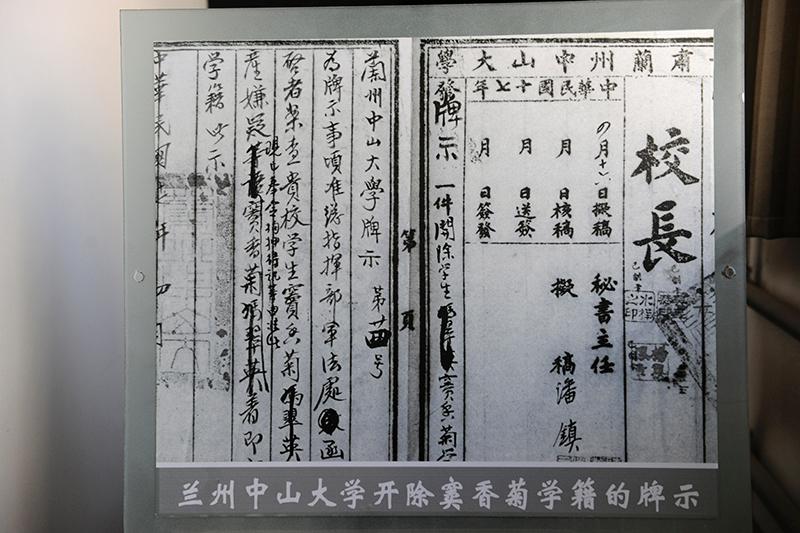 肅蘭州中山大學
中華民國十七年
校長
秘書主任
擬稿潘鎮
四月十六日擬稿
月 日核稿
月 日送發
月 日簽發
發牌示 一件開除学生 竇香菊学
第 頁
蘭州中山大學牌示 第 号
為牌示事頃准總指揮部軍法處函
啓者案查貴校学生竇香菊馮翠英
產嫌疑 竇香菊馮翠英着即
学籍此示
中華民國十七年四月
兰州中山大学开除窦香菊学籍的牌示